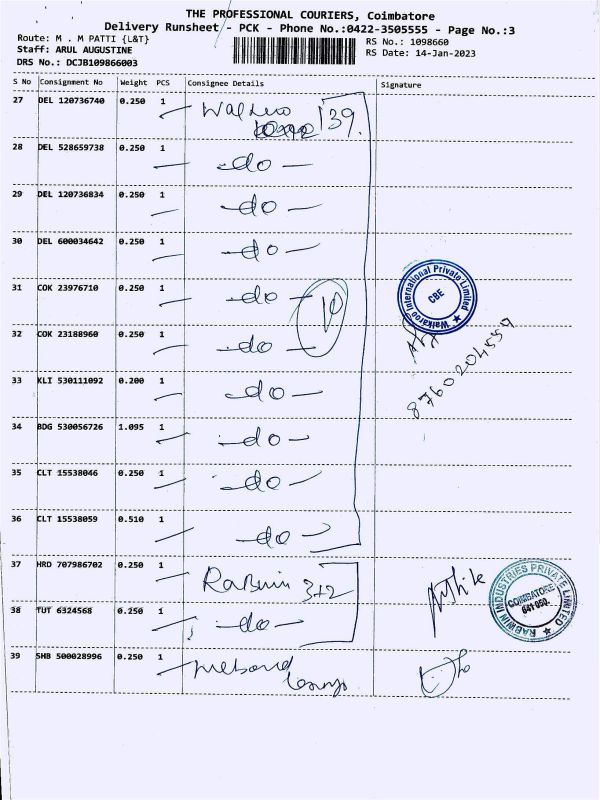 THE PROFESSIONAL COURIERS, Coimbatore
Delivery Runsheet - PCK - Phone No.:0422-3505555 - Page No.:3
Route: M . M PATTI {L&T}
RS No.: 1098660
Staff: ARUL AUGUSTINE
RS Date: 14-Jan-2023
DRS No.: DCJB109866003
S No Consignment No Weight PCS Consignee Details Signature
27 DEL 120736740 0.250 1
139.
28 DEL 528659738 0.250 1 -do-
29 DEL 120736834 0.250 1 -do-
30 DEL 600034642 0.250 1 -do-
31 COK 23976710 0.250 1 -do-
10
Walkaroo International Private Limited
CBE
32 COK 23188960 0.250 1 -do-
8760204559
33 KLI 530111092 0.200 1 -do-
34 BDG 530056726 1.095 1 -do-
35 CLT 15538046 0.250 1 -do-
36 CLT 15538059 0.510 1 -do-
37 HRD 707986702 0.250 1 Rabwin 3+2
RABWIN INDUSTRIES PRIVATE LIMITED
COIMBATORE
641 050.
38 TUT 6324568 0.250 1 -do-
39 SHB 500028996 0.250 1